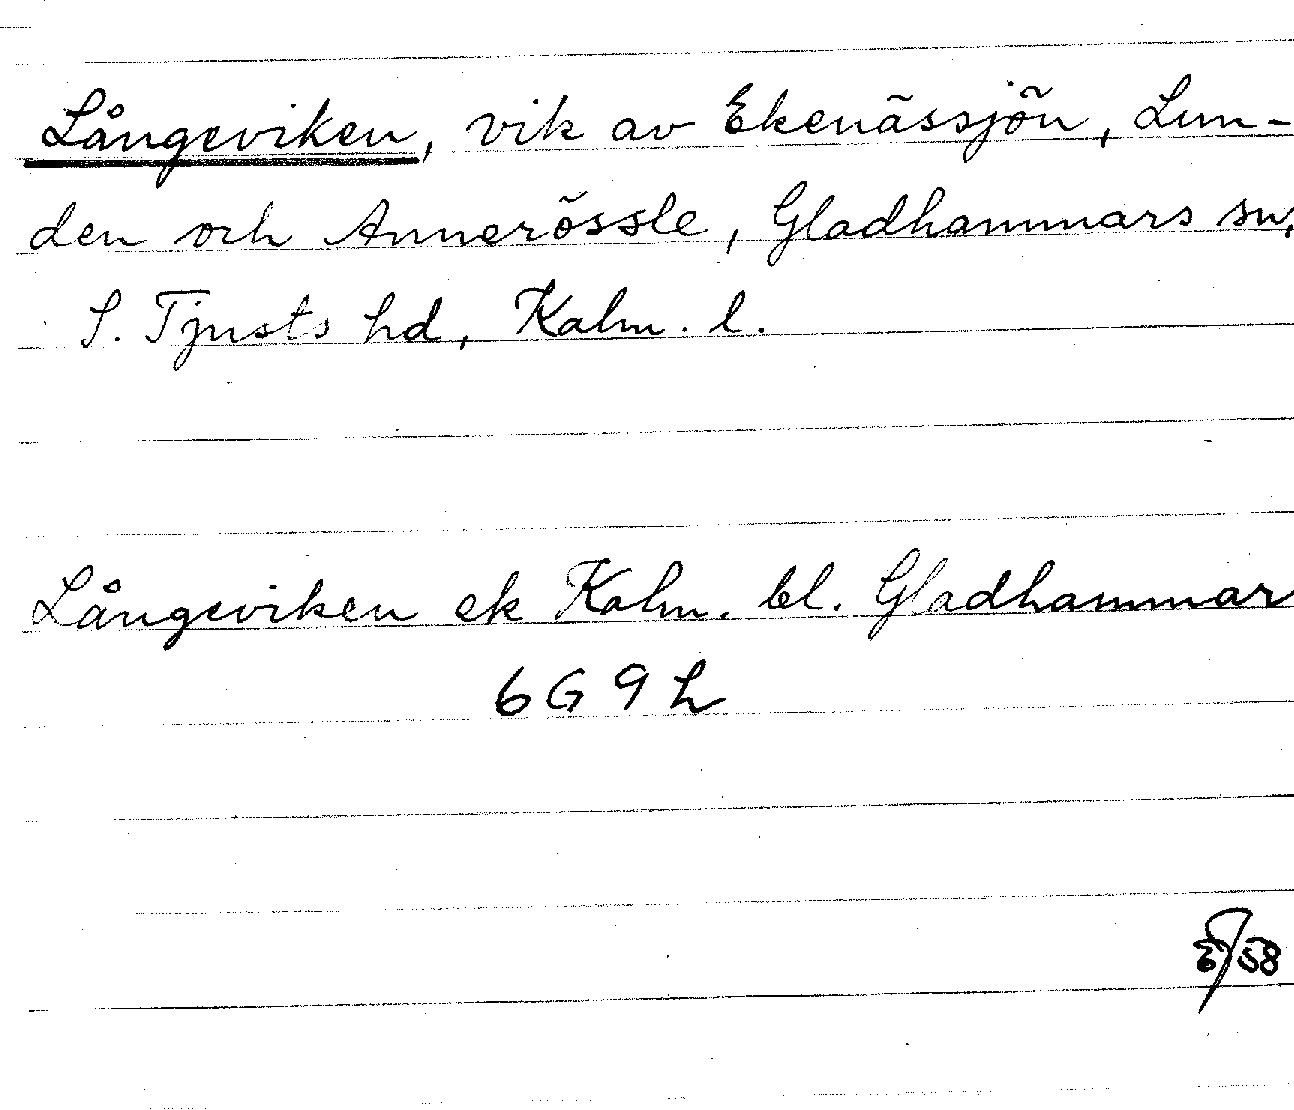 Långeviken, vik av Ekenässjön, Lun-
den och Annerössle, Gladhammars sn,
S. Tjusts hd, Kalm. l.
Långeviken ek Kalm. bl. Gladhammar
6G9h
58